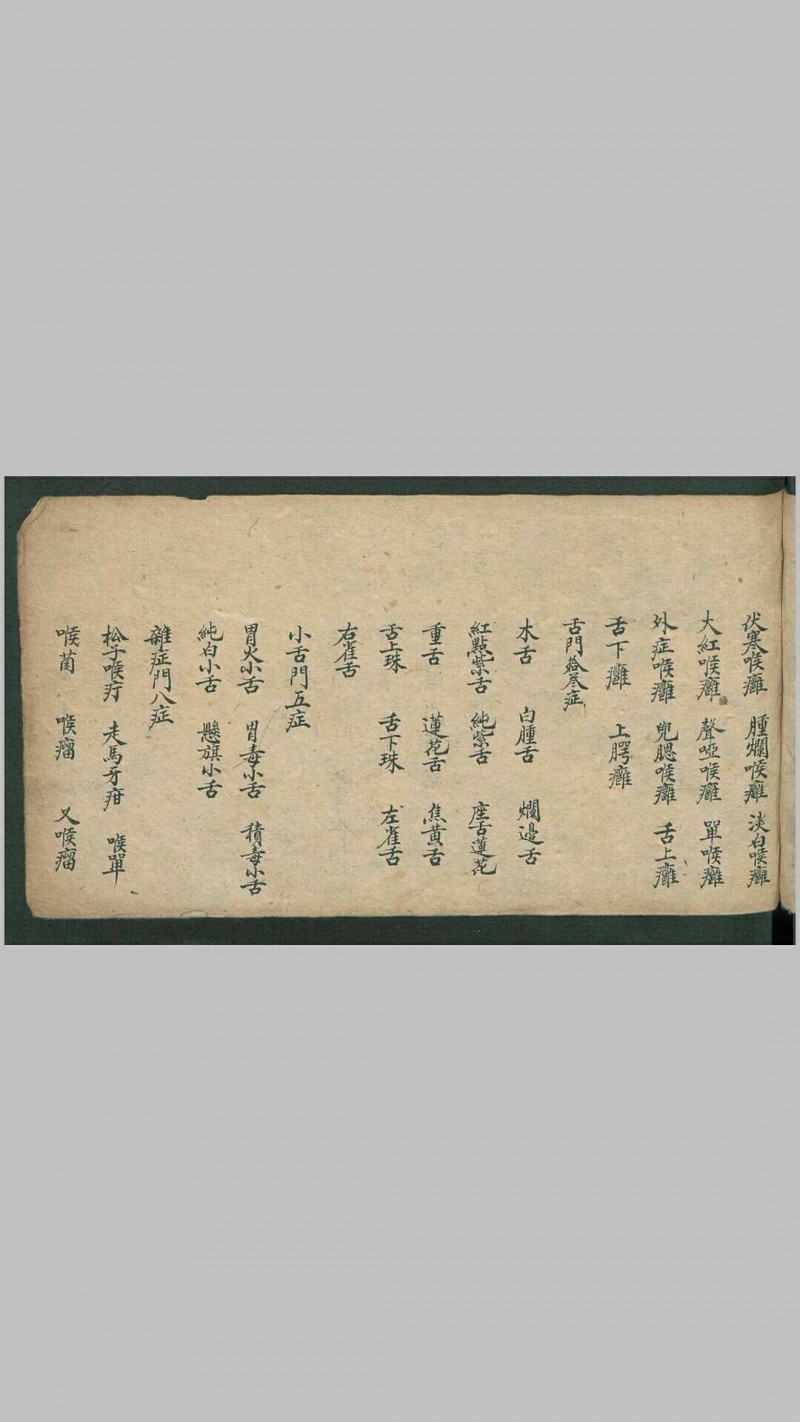 伏寒喉癰 腫爛喉癰 淡白喉癰
大紅喉癰 聲啞喉癰 單喉癰
外症喉癰 兜腮喉癰 舌上癰
舌下癰 上腭癰
舌門拾叁症
木舌 白腫舌 爛邊舌
紅點紫舌 純紫舌 座舌蓮花
重舌 蓮花舌 焦黄舌
舌上珠 舌下珠 左雀舌
右雀舌
小舌門五症
胃火小舌 胃毒小舌 積毒小舌
純白小舌 懸旗小舌
雜症門八症
松子喉疔 走馬牙疳 喉單
喉菌 喉瘤 又喉瘤